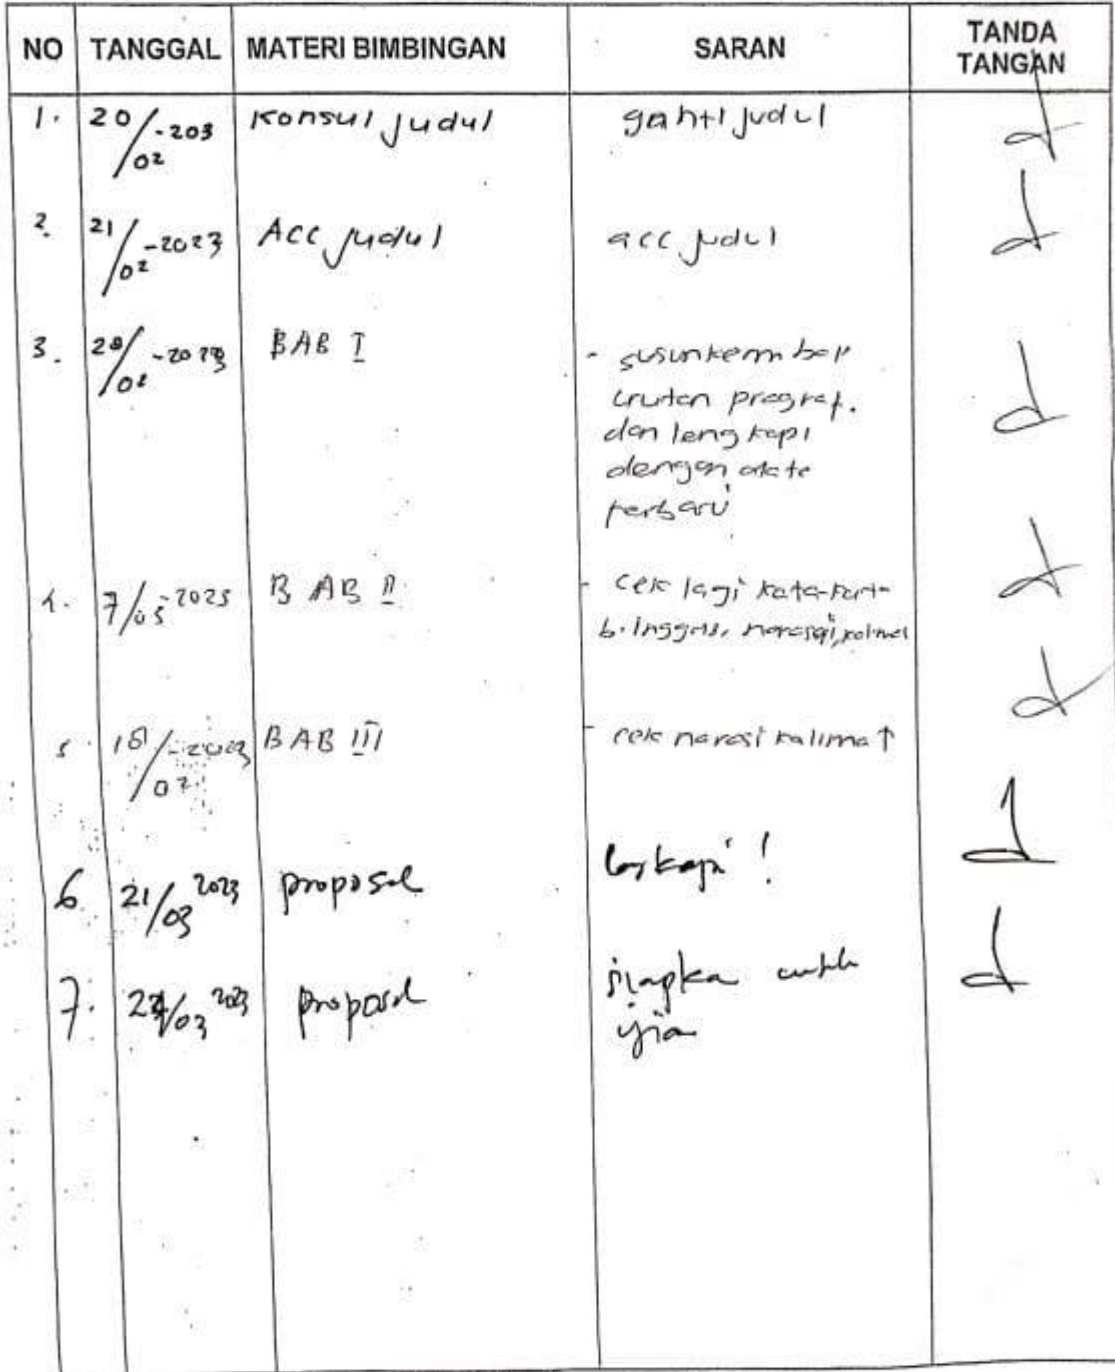 NO TANGGAL MATERI BIMBINGAN SARAN TANDA TANGAN
1. 20/02-203 Konsul judul ganti judul
2. 21/02-2023 Acc judul acc judul
3. 28/02-2023 BAB I - susun kembali
urutan pragraf.
dan lengkapi
dengan
terbaru
7/03-2023 BAB II - cek lagi kata-kata
b. Inggris, narasi,
5 -2023 BAB III - cek narasi kalimat
6 21/03 2023 proposal lengkapi !
7. /03 2023 proposal siapka untuk
ujia